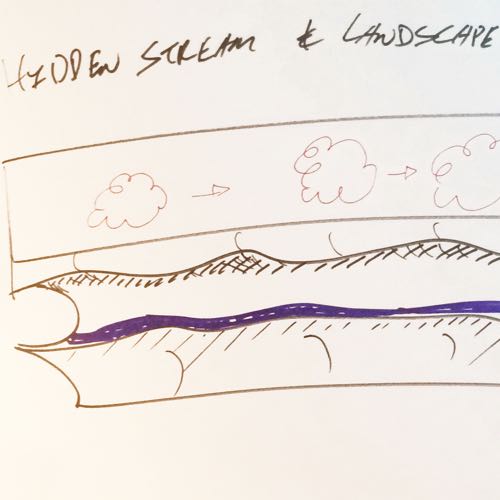 HIDDEN STREAM & LANDSCAPE